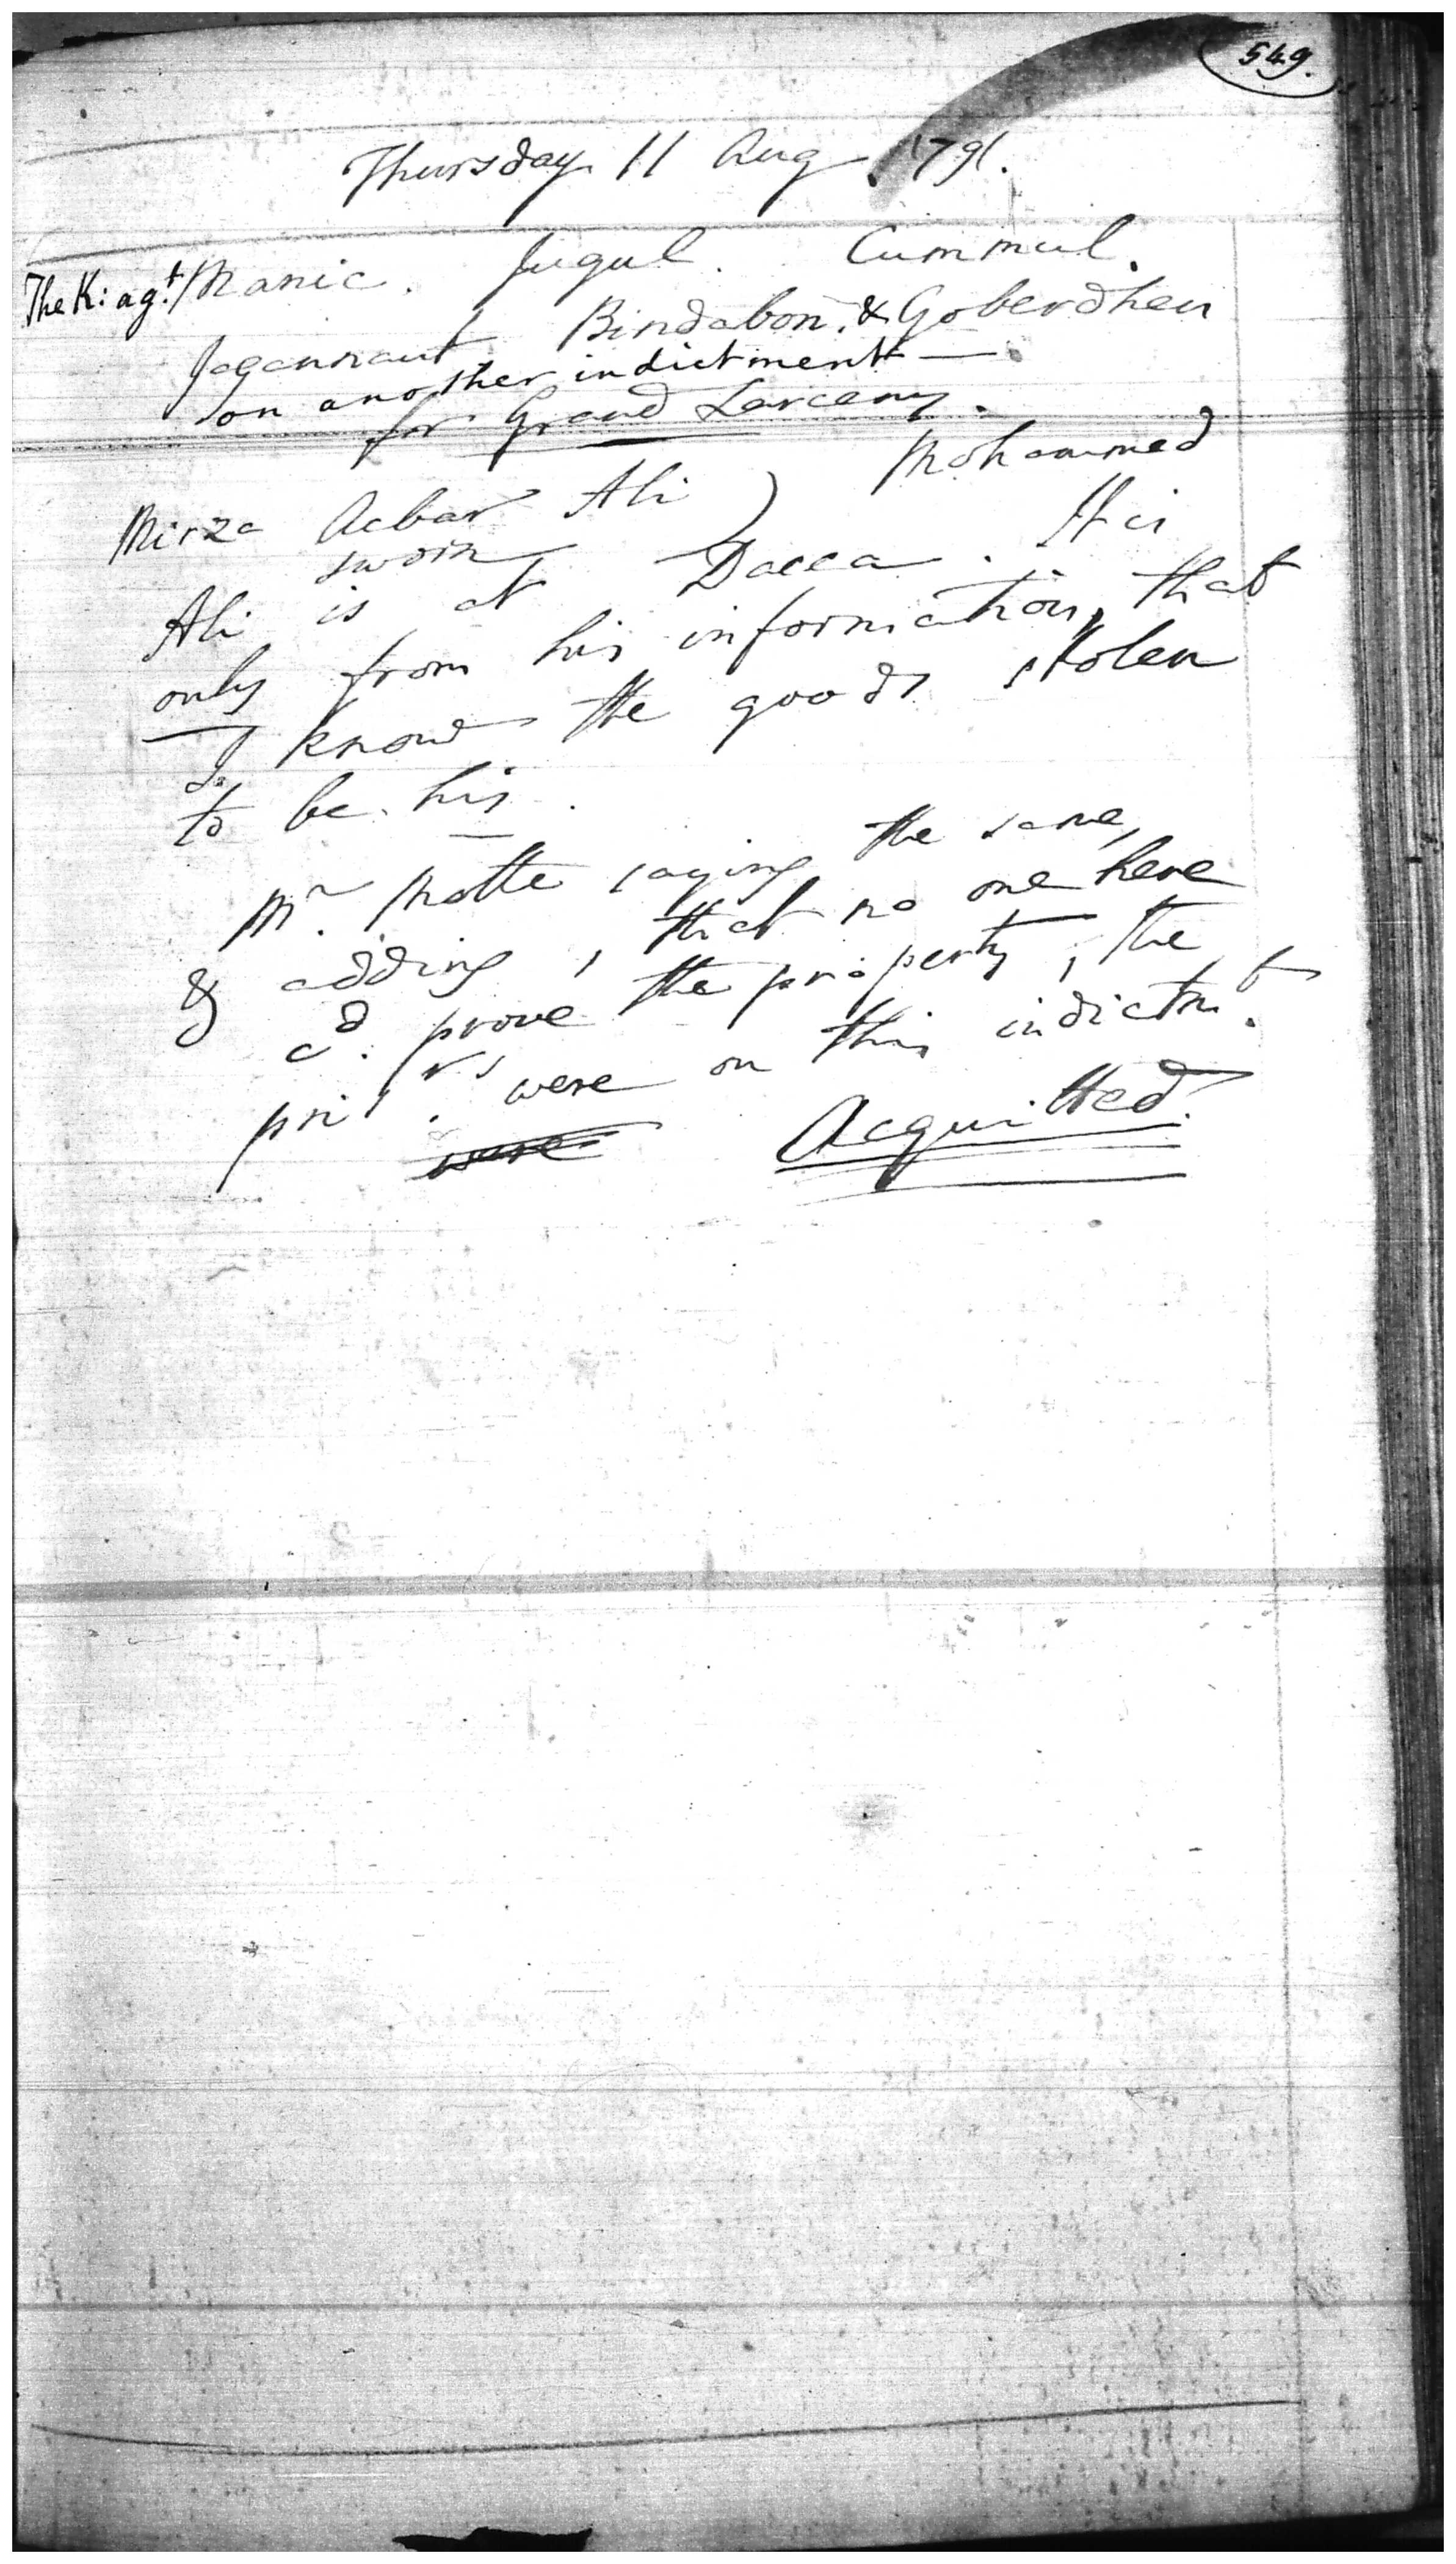 549.
Thursday 11 Aug. 1791.
The K: agt. Manic. Jugul. Cummul.
Jagannaut, Bindabon, & Goberdhen
on another indictment —
for Grand Larceny.
Mirza Acbar Ali ) Mohammed
sworn
Ali is at Dacca. It is
only from his information, that
I know the goods stolen
to be his.
Mr. Motte saying the same,
& adding, that no one here
cd. prove the property, the
prisrs. were on this indictmt.
were Acquitted.